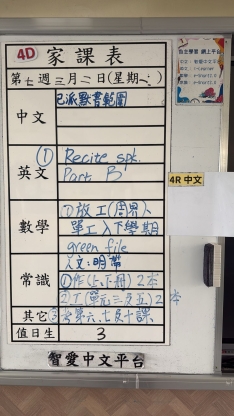 4D 家課表
第七週三月二日(星期一)
中文 已派默書範圍
英文 ① Recite spk.
Part B
數學 ①放工(周界)
單工入下學期
green file
常識 人文:明帶
①作(上、下冊) 2本
②工(單元三及五) 2本
其它 ③考第六、七及十課
值日生 3
智愛中文平台
4R 中文
自主學習 網上平台